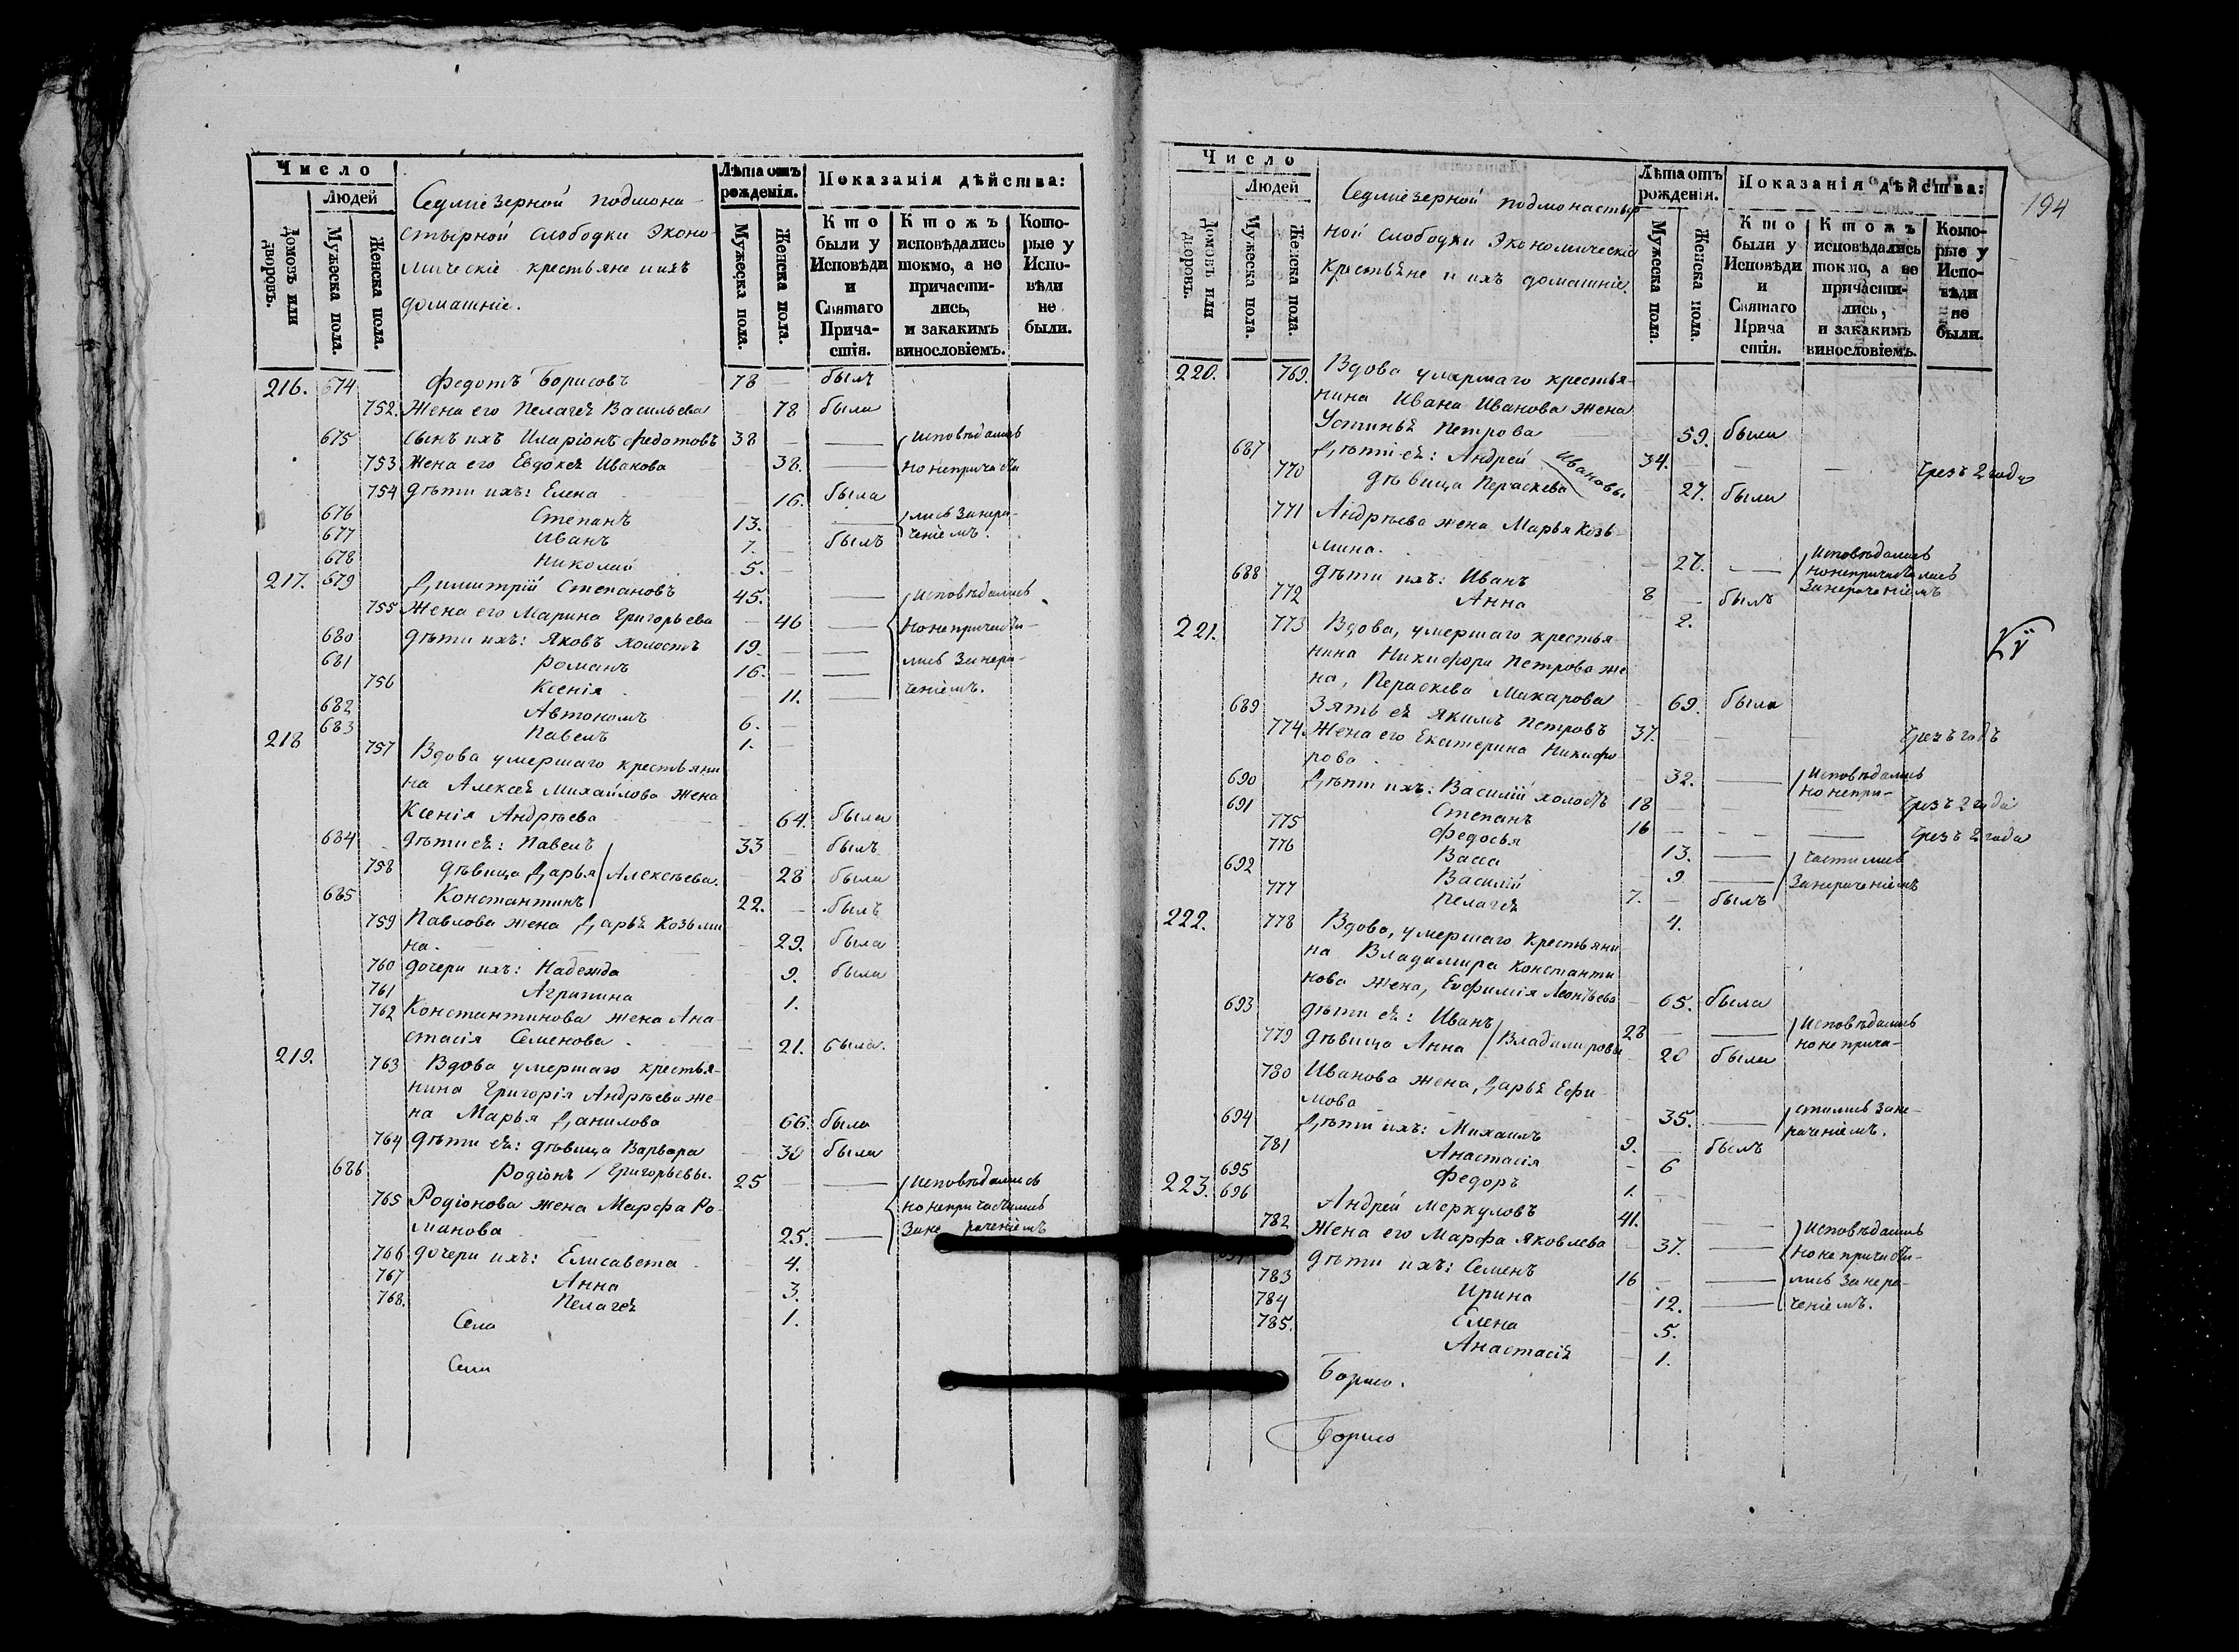 Число
Людей
Домовъ или дворовъ.
Мужеска пола.
Женска пола.
Седміезерной подмона-
стырной слободки Эконо-
мическіе крестьяне и ихъ
домашніе.
Лѣта отъ рожденія.
Мужеска пола.
Женска пола.
Показанія дѣйства:
Кто были у Исповѣди и Святаго Прича-стія.
Ктожъ исповѣдались токмо, а не причасти-лись, и закакимъ винословіемъ.
Кото-рые у Испо-вѣди не были.
216. 674 Федотъ Борисовъ 78 — былъ
752. Жена его Пелагеѣ Васильева — 78 была
675 Сынъ ихъ Иларіонъ Федотовъ 38 — — Исповѣдались
753 Жена его Евдокеѣ Иванова — 38. — но непричасти
754 дѣти ихъ: Елена — 16. была
676 Степанъ 13. — — лись занера-
677 Иванъ 7. — былъ ченіемъ.
678 Николай 5. —
217. 679 Димитрій Степановъ 45. — Исповѣдались
755 Жена его Марина Григорьева — 46 — но непричасти-
680 дѣти ихъ: Яковъ холостъ 19. — — лись занера-
681 Романъ 16. — —
756 Ксенія — 11. — ченіемъ.
682 Автономъ 6. —
683 Павелъ 1. —
218 757 Вдова умершаго крестьяни
на Алексеѣ Михайлова жена
Ксенія Андрѣева — 64. была
684 дѣти еѣ: Павелъ 33 — былъ
758 дѣвица Дарья Алексѣева. — 28 была
685 Константинъ 22. — былъ
759 Павлова жена Дарьѣ Козьми
на. — 29. была
760 дочери ихъ: Надежда 9. была
761 Агрипина 1.
762 Константинова жена Ана-
стасія Семенова. — 21. была.
219. 763 Вдова умершаго крестья-
нина Григорія Андрѣева же-
на Марья Данилова 66. была
764 дѣти еѣ: дѣвица Варвара — 30 была
686 Родіонъ / Григорьевы. 25 — — Исповѣдались
765 Родіонова жена Марфа Ро-
манова 25. — но непричастились
Зане раченіемъ
766 дочери ихъ: Елисавета 4.
767 Анна — 3.
768. Пелагеѣ — 1.
Села
Села
194
Число
Людей
Домовъ или дворовъ.
Мужеска пола.
Женска пола.
Седміезерной подмонастыр
ной слободки Экономическіе
Крестьѣне и ихъ домашніе.
Лѣта отъ рожденія.
Мужеска пола.
Женска пола.
Показанія дѣйства:
Кто были у Исповѣди и Святаго Прича стія.
Ктожъ исповѣдались токмо, а не причасти-лись, и закакимъ винословіемъ.
Кото-рые у Испо-вѣди не были.
220. 769. Вдова умершаго крестья-
нина Ивана Иванова жена
Устиньѣ Петрова 59. была
687 Дѣти еѣ: Андрей Ивановы 34. — — — Чрезъ 2 года
770 дѣвица Параскева — 27. была
771 Андрѣева жена Марья Козь-
мина. — 27. — Исповѣдались
но непричастились
занераченіемъ
688 дѣти ихъ: Иванъ 8 — былъ
772 Анна — 2.
221. 773 Вдова, умершаго крестья-
нина Никифора Петрова же
на, Параскева Макарова 69. была
689 Зять еѣ Якимъ Петровъ 37. — — Чрезъ годъ
774 Жена его Екатерина Никифо
рова. — 32. — Исповѣдались
но непри-
690 Дѣти ихъ: Василій холостъ 18 — — Чрезъ 2 года
691 Степанъ 16 — — — Чрезъ 2 года
775 Федосья 13. — частились
776 Васса — 9 — Занераченіемъ
692 Василій 7. — былъ
777 Пелагеѣ 4.
222. 778 Вдова, умершаго Крестьяни
на Владимира Константи
нова жена, Евфимія Леонтьева — 65. была
693 дѣти еѣ: Иванъ 28 — — Исповѣдались
779 дѣвица Анна / Владимировы 20 была но не прича-
780 Иванова жена, Дарьѣ Ефи-
мова — 35. — стились зане-
раченіемъ.
694 Дѣти ихъ: Михаилъ 9. — былъ
781 Анастасія — 6
695 Федоръ 1. —
223. 696 Андрей Меркуловъ 41. — — Исповѣдались
782 Жена его Марфа Яковлева — 37. — но не причасти-
дѣти ихъ: Семенъ 16 — — лись занера-
783 Ирина — 12. — ченіемъ.
784 Елена — 5.
785. Анастасіѣ — 1.
Борисо.
Борисо